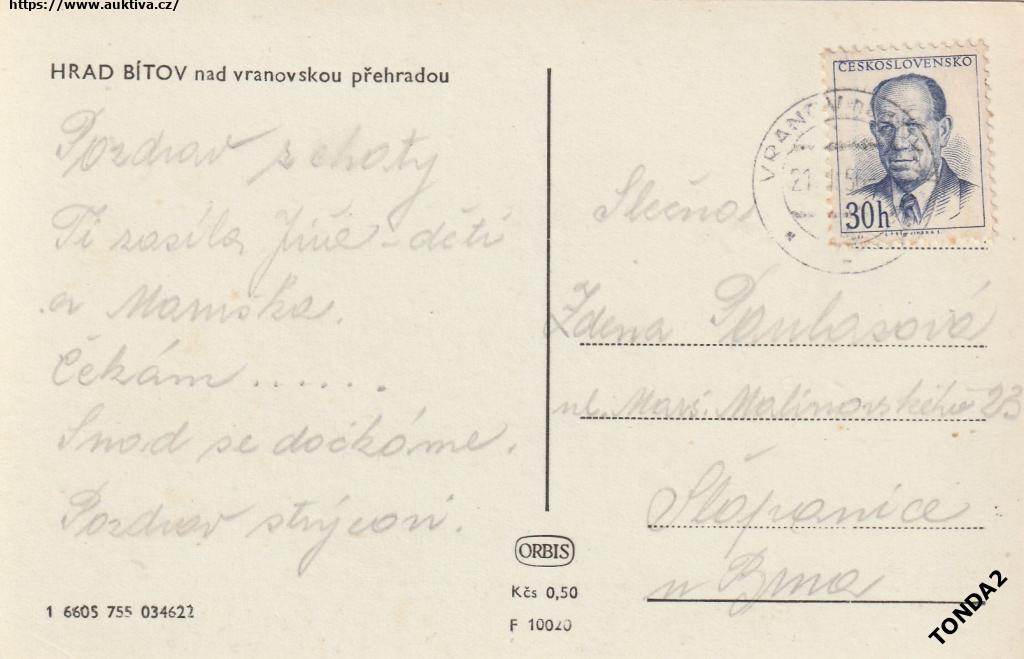 https://www.auktiva.cz/
HRAD BÍTOV nad vranovskou přehradou
Pozdrav z chaty
Ti zasílá Jiří - děti
a Mamška.
Čekám ......
Snad se dočkáme.
Pozdrav strýcovi.
1 6605 755 034622
ORBIS
Kčs 0,50
F 10020
ČESKOSLOVENSKO
30h
VRANOV
21
Slečna
Zdena Paulasová
ul. Marš. Malinovského 23
Šlapanice
u Brna
TONDA2